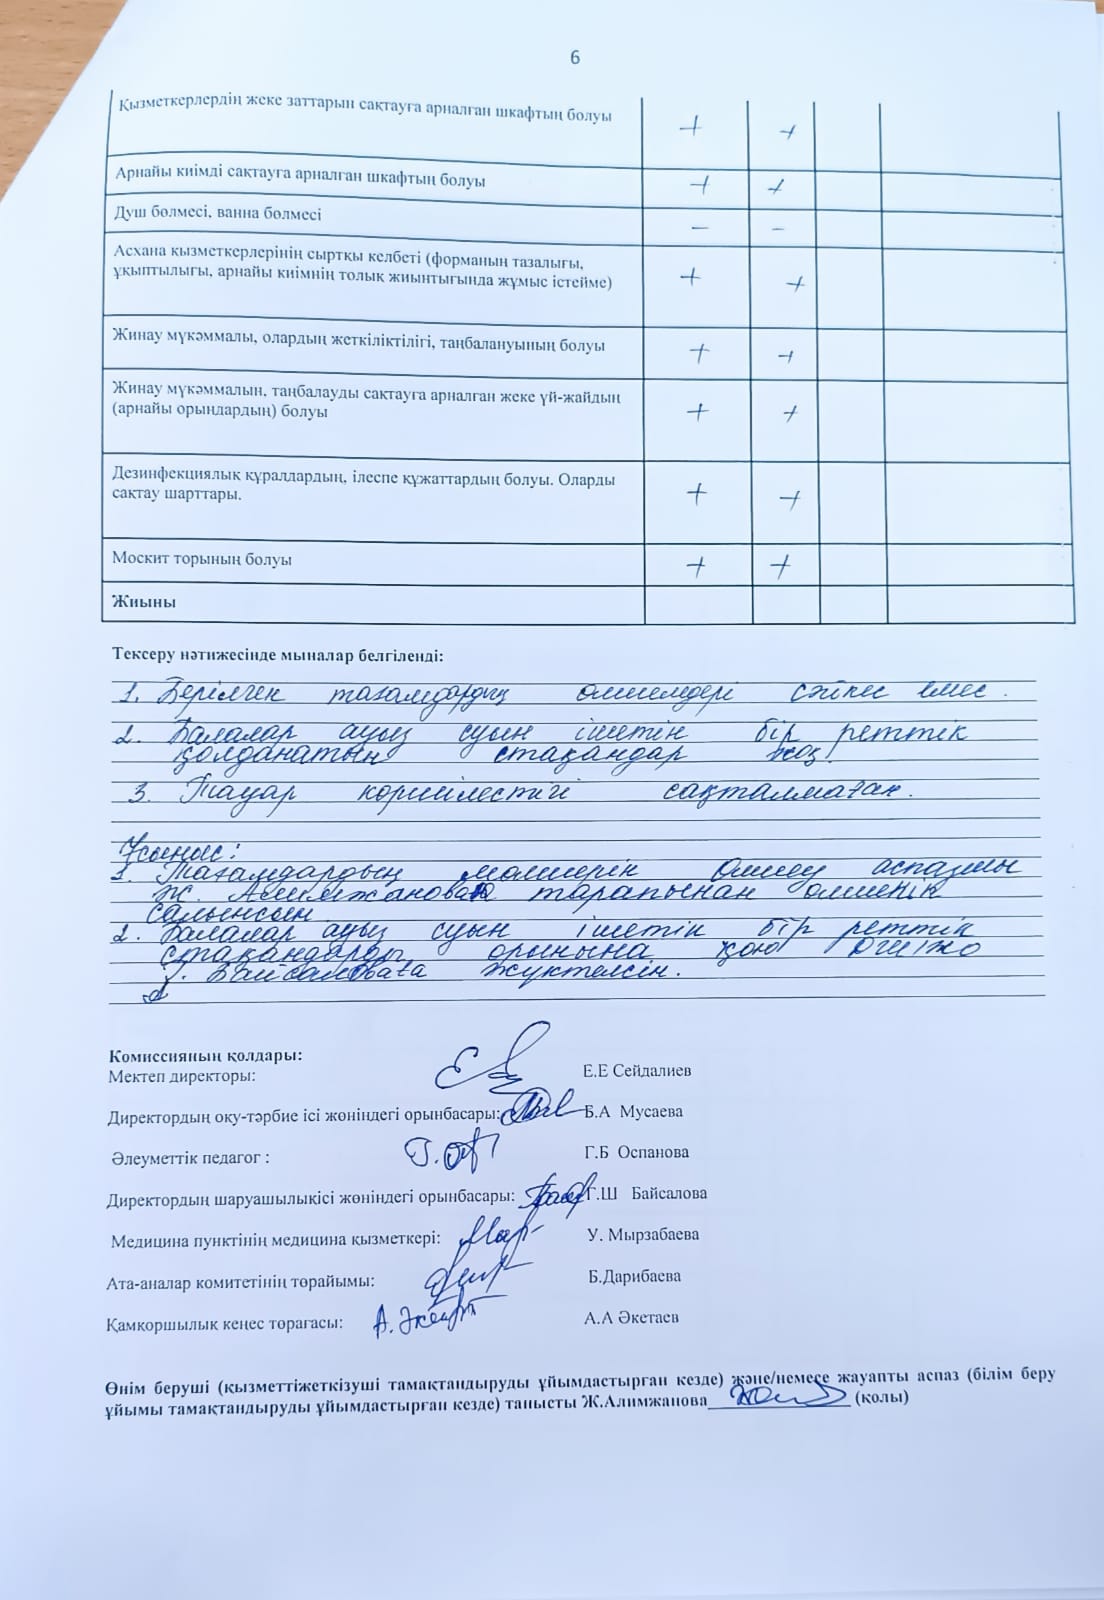 6
Қызметкерлердің жеке заттарын сақтауға арналған шкафтың болуы + +
Арнайы киімді сақтауға арналған шкафтың болуы + +
Душ бөлмесі, ванна бөлмесі – –
Асхана қызметкерлерінің сыртқы келбеті (форманың тазалығы,
ұқыптылығы, арнайы киімнің толық жиынтығында жұмыс істейме) + +
Жинау мүкәммалы, олардың жеткіліктілігі, таңбалануының болуы + +
Жинау мүкәммалын, таңбалауды сақтауға арналған жеке үй-жайдың
(арнайы орындардың) болуы + +
Дезинфекциялық құралдардың, ілеспе құжаттардың болуы. Оларды
сақтау шарттары. + +
Москит торының болуы + +
Жиыны
Тексеру нәтижесінде мыналар белгіленді:
1. Берілген тағамдардың өлшемдері сәйкес емес.
2. Балалар ауыз суын ішетін бір реттік
қолданатын стақандар жоқ.
3. Тауар көршілестігі сақталмаған.
Ұсыныс:
1. Тағамдардың мөлшерін өлшеу аспазшы
Ж. Алимжанова тарапынан өлшеніп
салынсын.
2. Балалар ауыз суын ішетін бір реттік
стақандарды орынына қою
Байсаловаға жүктелсін.
Комиссияның қолдары:
Мектеп директоры: Е.Е Сейдалиев
Директордың оқу-тәрбие ісі жөніндегі орынбасары: Б.А Мусаева
Әлеуметтік педагог : Г.Б Оспанова
Директордың шаруашылықісі жөніндегі орынбасары: Г.Ш Байсалова
Медицина пунктінің медицина қызметкері: У. Мырзабаева
Ата-аналар комитетінің төрайымы: Б.Дарибаева
Қамқоршылық кеңес төрағасы: А. Әкет А.А Әкетаев
Өнім беруші (қызметтіжеткізуші тамақтандыруды ұйымдастырған кезде) және/немесе жауапты аспаз (білім беру
ұйымы тамақтандыруды ұйымдастырған кезде) танысты Ж.Алимжанова (қолы)